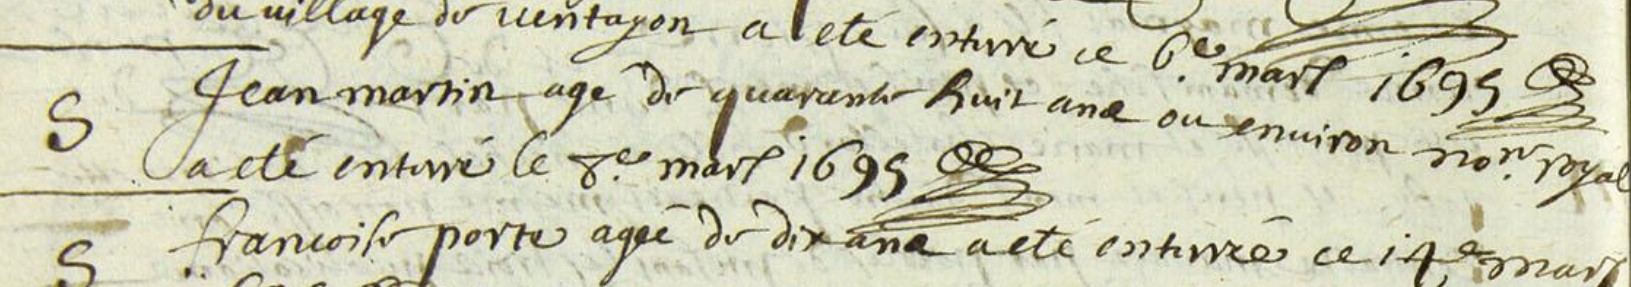 du village de ventajon a eté enterré ce 6e. mars 1695
S Jean martin agé de quarante huit ans ou environ nore. royal
a eté enterré le 8e. mars 1695
S francoise porte agée de dix ans a eté enterrée ce 14e mars